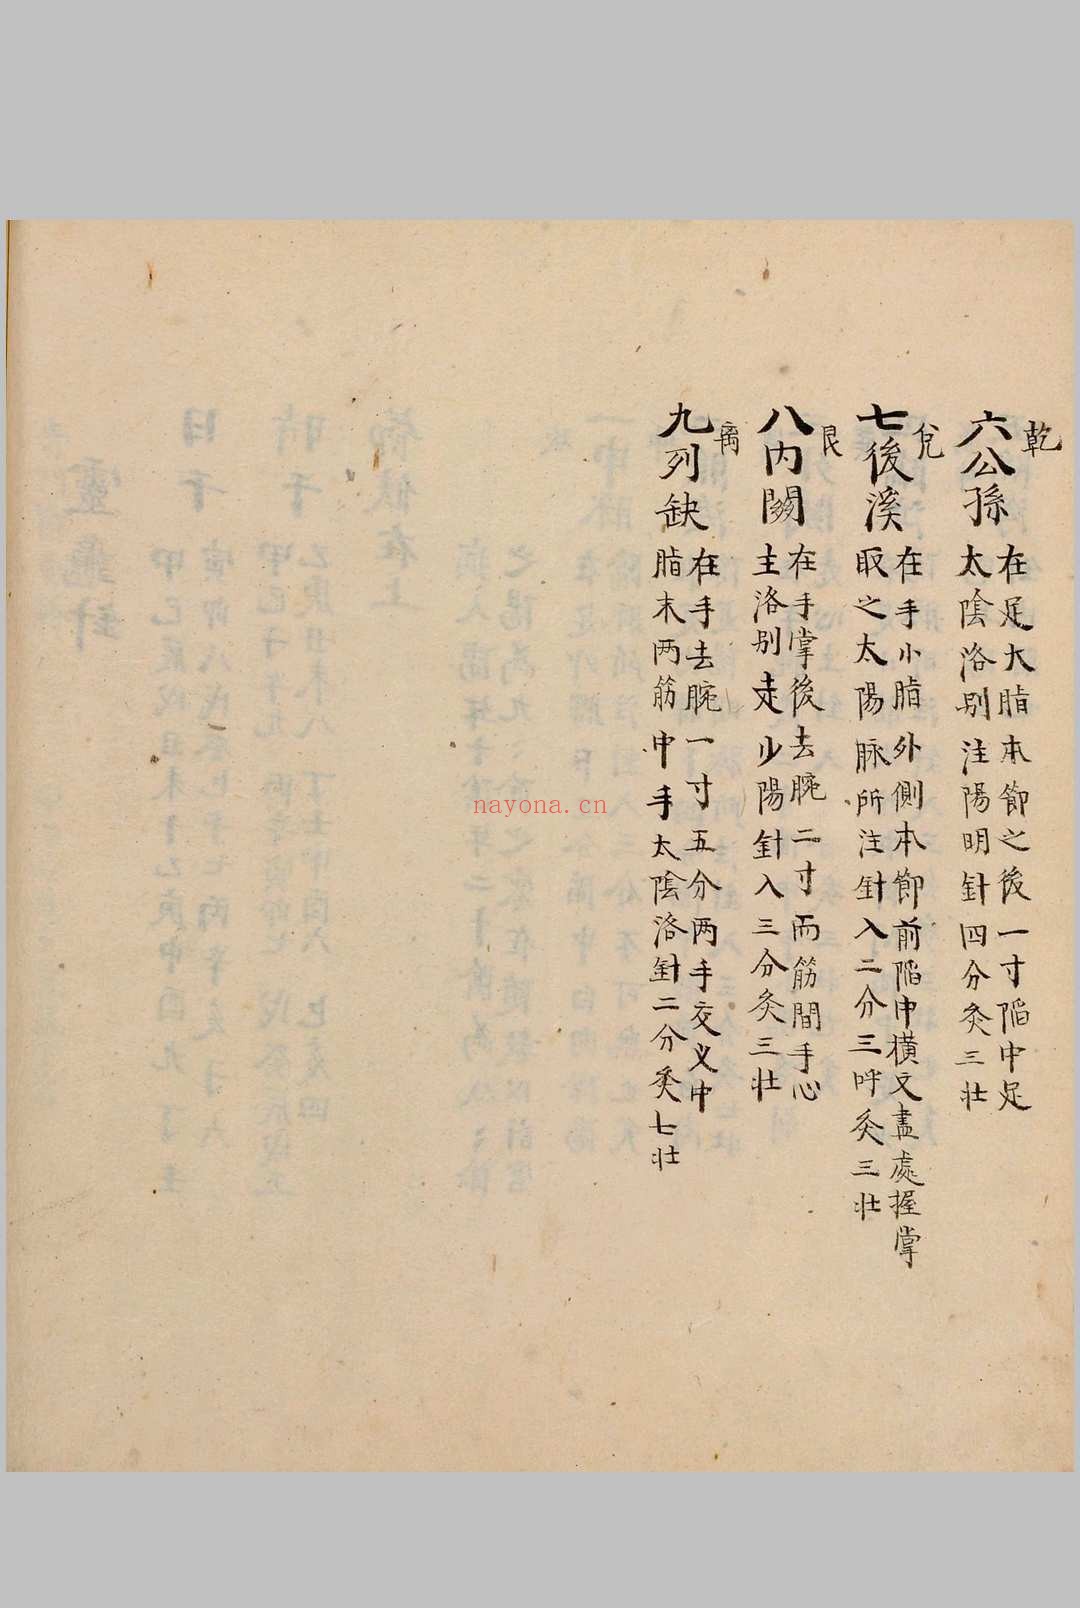 乾
六公孫
在足大脂本節之後一寸陷中足
太陰洛别注陽明針四分灸三壮
兌
七後溪
在手小脂外側本節前陷中横文盡處握掌
取之太陽脉所注針入二分三呼灸三壮
艮
八内關
在手掌後去腕二寸两筋間手心
主洛别走少陽針入三分灸三壮
離
九列缺
在手去腕一寸五分两手交义中
脂末两筋中手太陰洛針二分灸七壮
nayona.cn